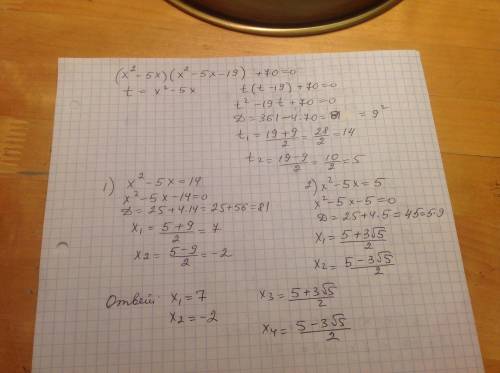 (x² - 5x)(x² - 5x - 19) + 70 = 0
t = x² - 5x
t(t - 19) + 70 = 0
t² - 19t + 70 = 0
D = 361 - 4·70 = 81 = 9²
t₁ = (19 + 9)/2 = 28/2 = 14
t₂ = (19 - 9)/2 = 10/2 = 5
1) x² - 5x = 14
x² - 5x - 14 = 0
D = 25 + 4·14 = 25 + 56 = 81
x₁ = (5 + 9)/2 = 7
x₂ = (5 - 9)/2 = -2
2) x² - 5x = 5
x² - 5x - 5 = 0
D = 25 + 4·5 = 45 = 5·9
x₁ = (5 + 3√5)/2
x₂ = (5 - 3√5)/2
Ответ: x₁ = 7
x₂ = -2
x₃ = (5 + 3√5)/2
x₄ = (5 - 3√5)/2